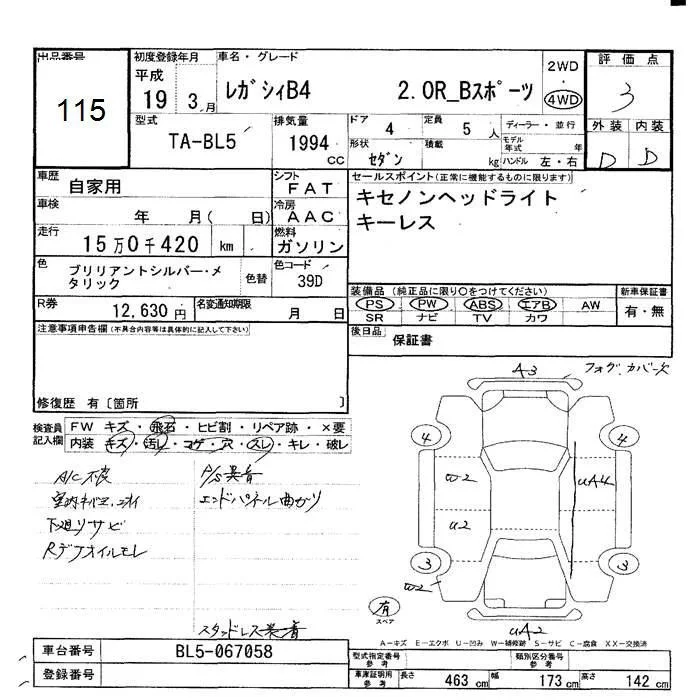 出品番号
115
初度登録年月
平成
19 3 月
車名・グレード
レガシィB4 2.0R_Bスポーツ
2WD
・
4WD
評価点
3
外装 内装
D D
型式
TA-BL5
排気量
1994
CC
ドア 4
定員 5 人
ディーラー・並行
形状 セダン
積載 kg
モデル年式 年
ハンドル 左・右
車歴
自家用
シフト
FAT
車検
年 月( 日)
冷房
AAC
走行
15万0千420 km
燃料
ガソリン
色
ブリリアントシルバー・メタリック
色替
色コード
39D
R券
12,630 円
名変通知期限
月 日
セールスポイント(正常に機能するものに限ります)
キセノンヘッドライト
キーレス
装備品(純正品に限り○をつけてください)
PS PW ABS エアB AW
SR ナビ TV カワ
新車保証書
有・無
後日品
保証書
注意事項申告欄(不具合内容等は具体的に記入して下さい)
修復歴 有[箇所 ]
検査員記入欄
FW キズ・飛石・ヒビ割・リペア跡・×要
内装 キズ・汚レ・コゲ・穴・スレ・キレ・破レ
A/C不良
下廻リサビ
Rデフオイルモレ
P/S異音
エンドパネル曲がり
スタッドレス装着
A3
フォグカバー欠
4 4
W2
UA4
U2
3 3
W2
有
スペア
UA2
A-キズ E-エクボ U-凹み W-補修跡 S-サビ C-腐食 XX-交換済
車台番号
BL5-067058
登録番号
型式指定番号
参考
類別区分番号
参考
車庫証明用
参考
長さ 463 cm
幅 173 cm
高さ 142 cm